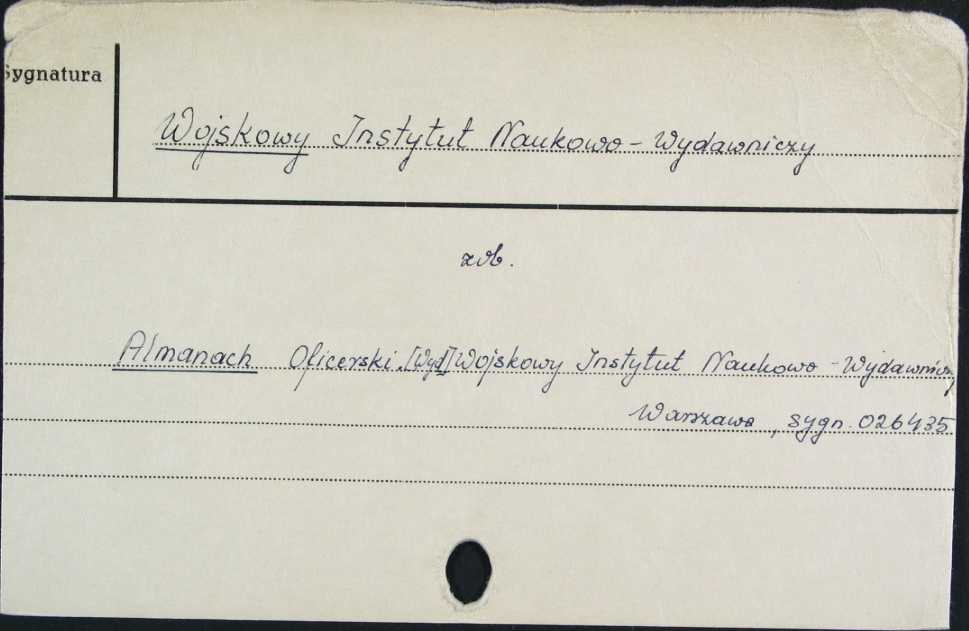 Sygnatura
Wojskowy Instytut Naukowo-Wydawniczy
zob.
Almanach Oficerski. [Wyd.] Wojskowy Instytut Naukowo-Wydawniczy
Warszawa, sygn. 026435